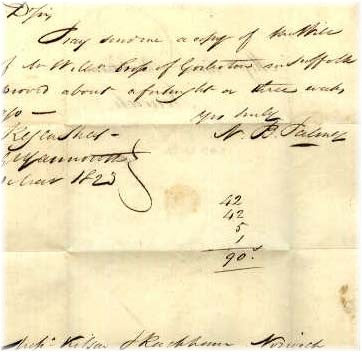 Dr Sir
Pray send me a copy of the Will
of Mr Willm Cross of Gorleston in Suffolk
proved about a fortnight or three weeks
ago –
Yrs truly
N. B. Palmer
Yarmouth
1823
42
42
5
1
90
Messrs Kitson & Rackham Norwich